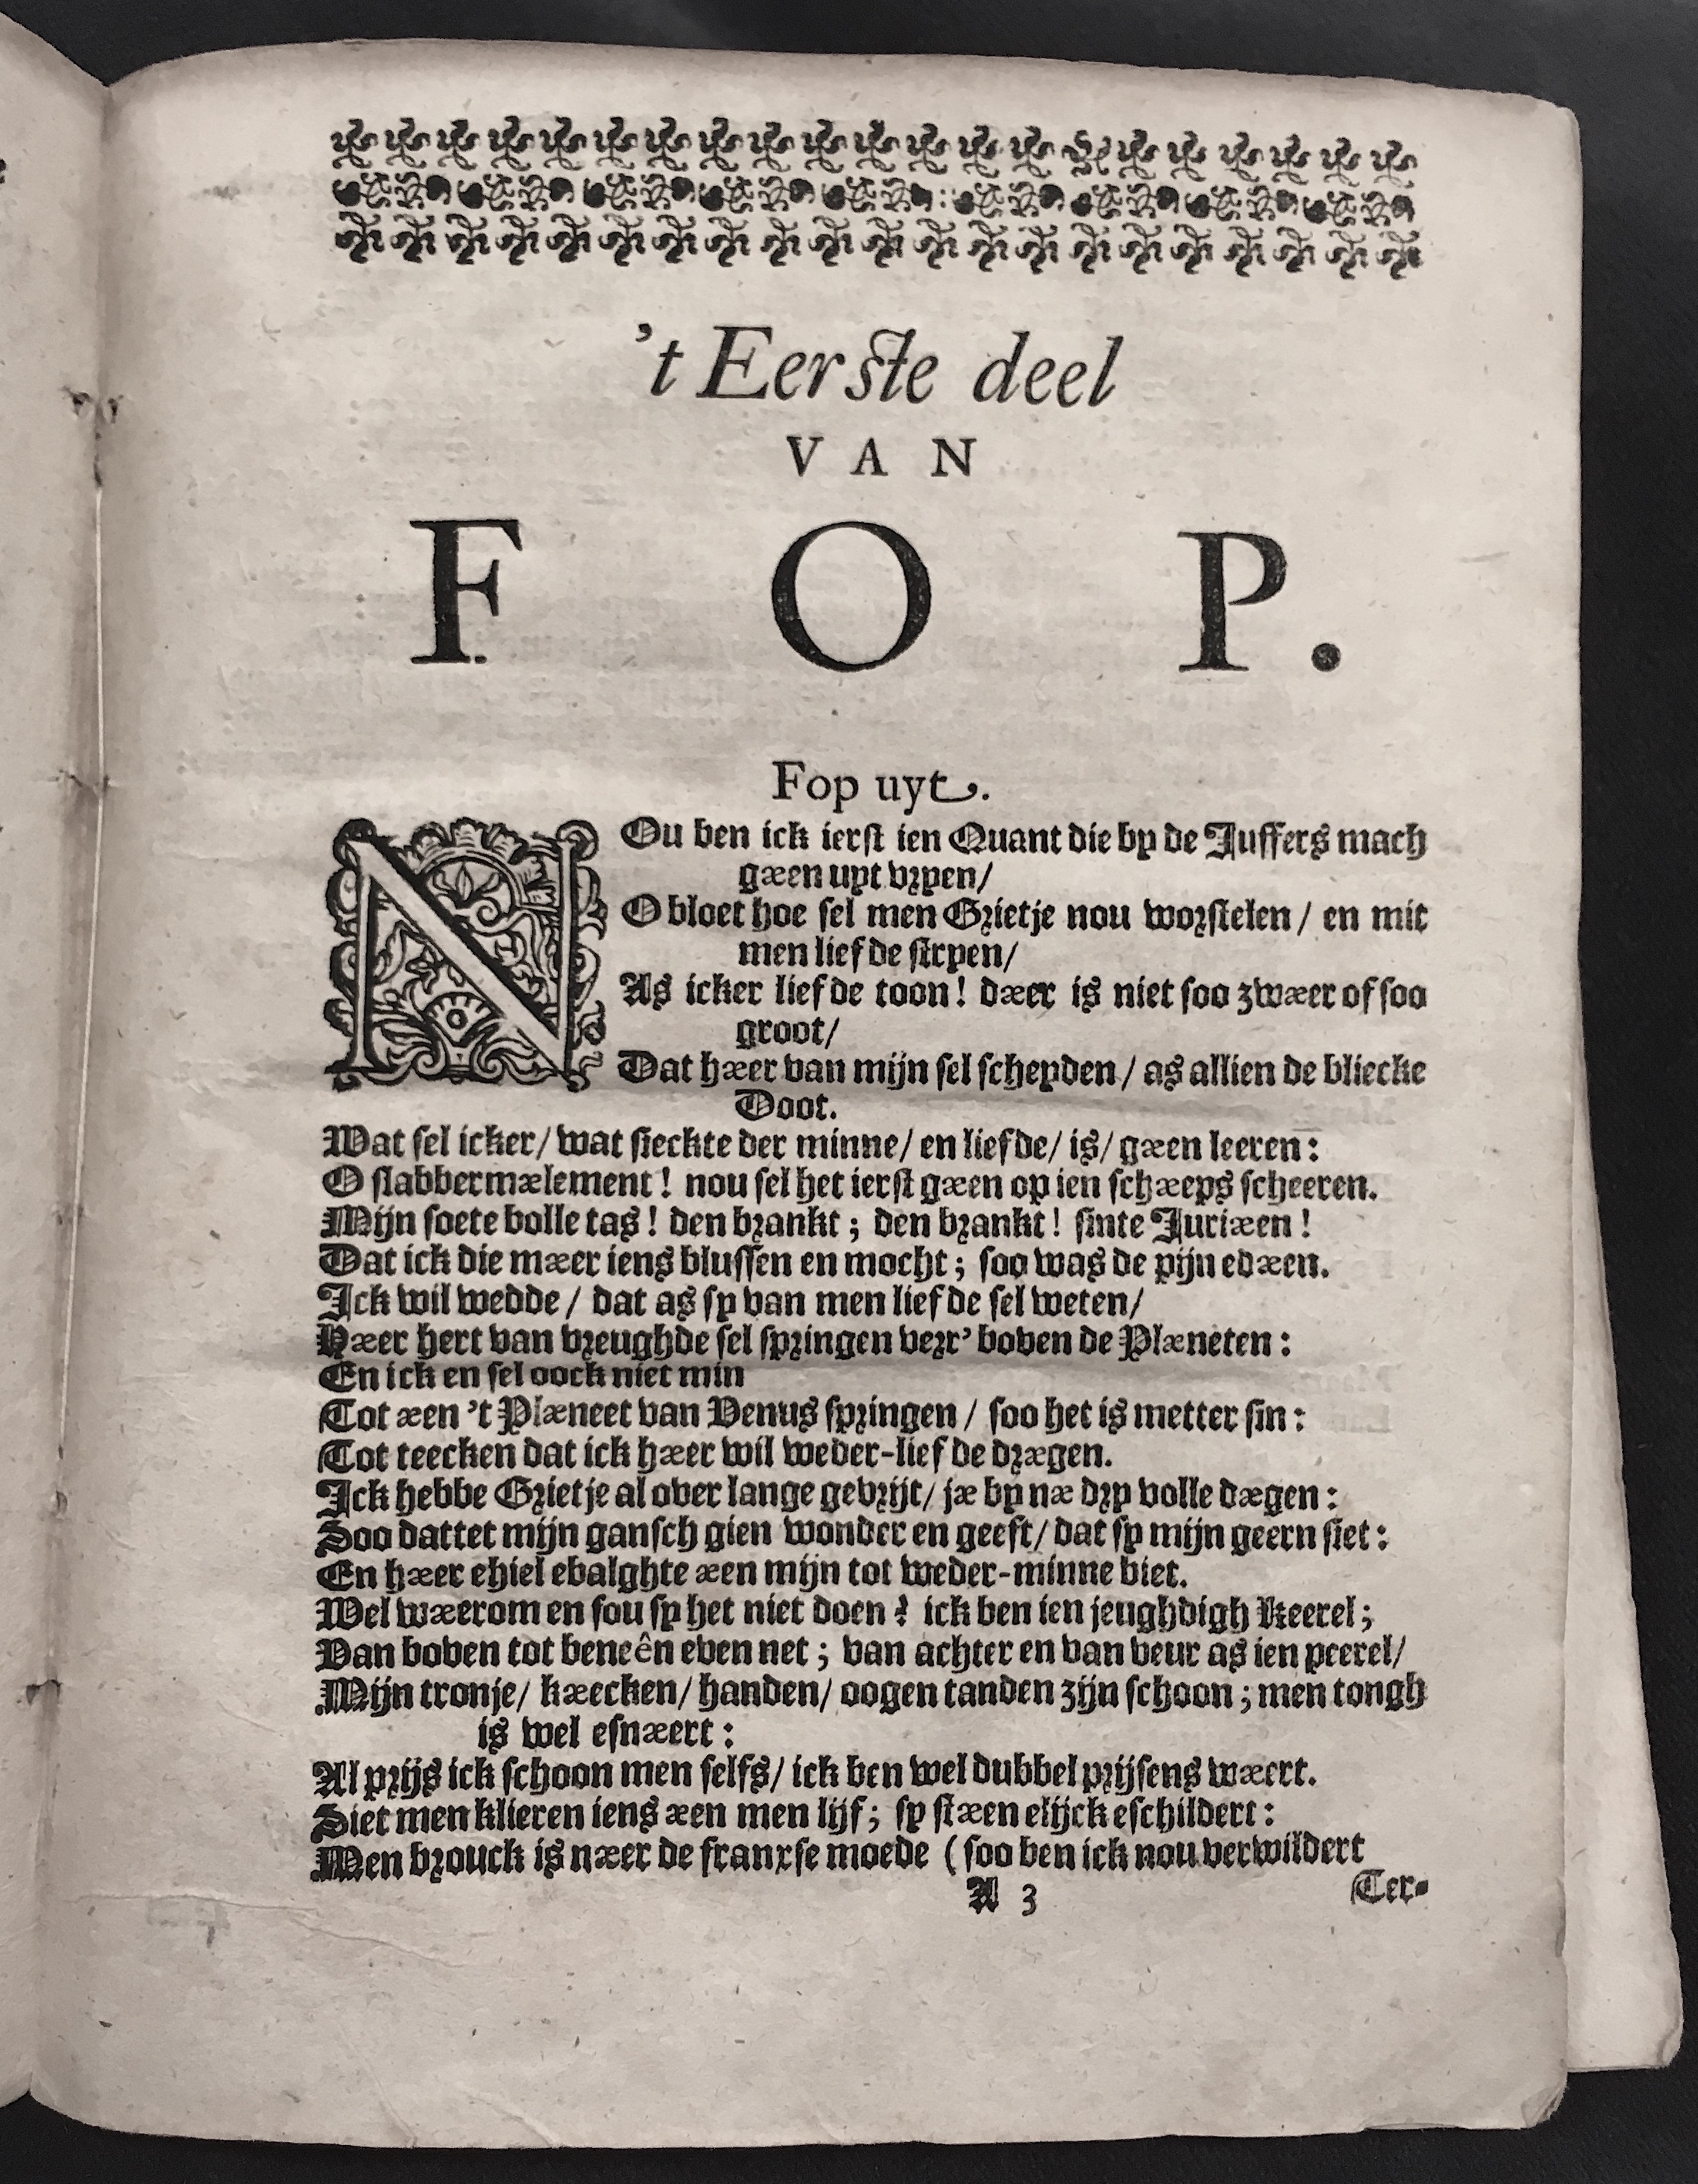 't Eerste deel
VAN
FOP.
Fop uyt.
NOu ben ick ierst ien Quant die by de Juffers mach
gæen uyt vryen/
O bloet hoe sel men Grietje nou worstelen/ en mit
men liefde stryen/
As icker liefde toon! dæer is niet soo zwæer of soo
groot/
Dat hæer van mijn sel scheyden/ as allien de bliecke
Doot.
Wat sel icker/ wat sieckte der minne/ en liefde/ is/ gæen leeren:
O slabbermælement! nou sel het ierst gæen op ien schæeps scheeren.
Mijn soete bolle tas! den brankt; den brankt! sinte Juriæen!
Dat ick die mæer iens blussen en mocht; soo was de pijn edæen.
Ick wil wedde/ dat as sy van men liefde sel weten/
Hæer hert van vreughde sel springen verr' boven de Plæneten:
En ick en sel oock niet min
Tot æen 't Plæneet van Venus springen/ soo het is metter sin:
Tot teecken dat ick hæer wil weder-liefde drægen.
Ick hebbe Grietje al over lange gevrijt/ jæ by næ dry volle dægen:
Soo dattet mijn gansch gien wonder en geeft/ dat sy mijn geern siet:
En hæer ehiel ebalghte æen mijn tot weder-minne biet.
Wel wæerom en sou sy het niet doen? ick ben ien jeughdigh Keerel;
Van boven tot beneên even net; van achter en van veur as ien peerel/
Mijn tronje/ kæecken/ handen/ oogen tanden zijn schoon; men tongh
is wel esnæert:
Al prijs ick schoon men selfs/ ick ben wel dubbel prijsens wæert.
Siet men klieren iens æen men lijf; sy stæen elijck eschildert:
Men brouck is næer de franxse moede (soo ben ick nou verwildert
A 3 Ter-